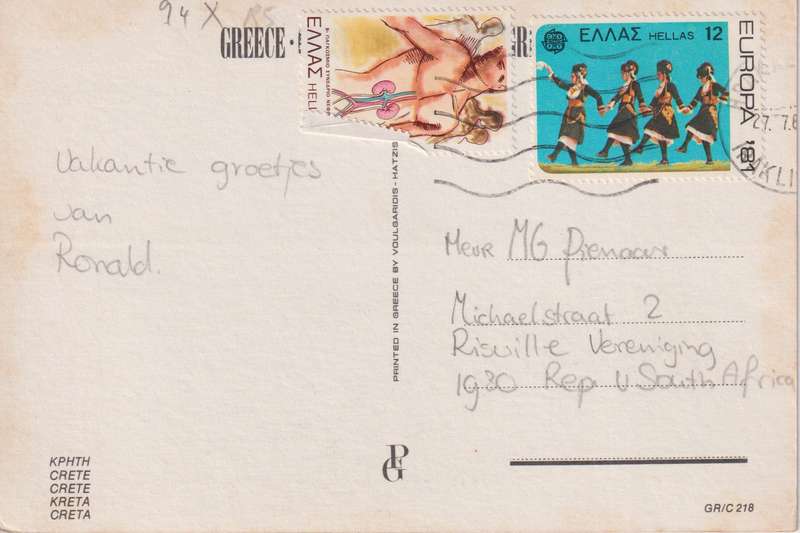 94 X RS
GREECE
Β' ΠΑΓΚΟΣΜΙΟ ΣΥΝΕΔΡΙΟ ΝΕΦΡ
ΕΛΛΑΣ HELL
ΕΛΛΑΣ HELLAS 12
EUROPA '81
27. 7.8
RAKLI
Vakantie groetjes
van
Ronald.
PRINTED IN GREECE BY VOULGARIDIS - HATZIS
Meur MG Pienaar
Michaelstraat 2
Risiville Vereniging
1930 Rep V South Africa
ΚΡΗΤΗ
CRETE
CRETE
KRETA
CRETA
PG
GR/C 218